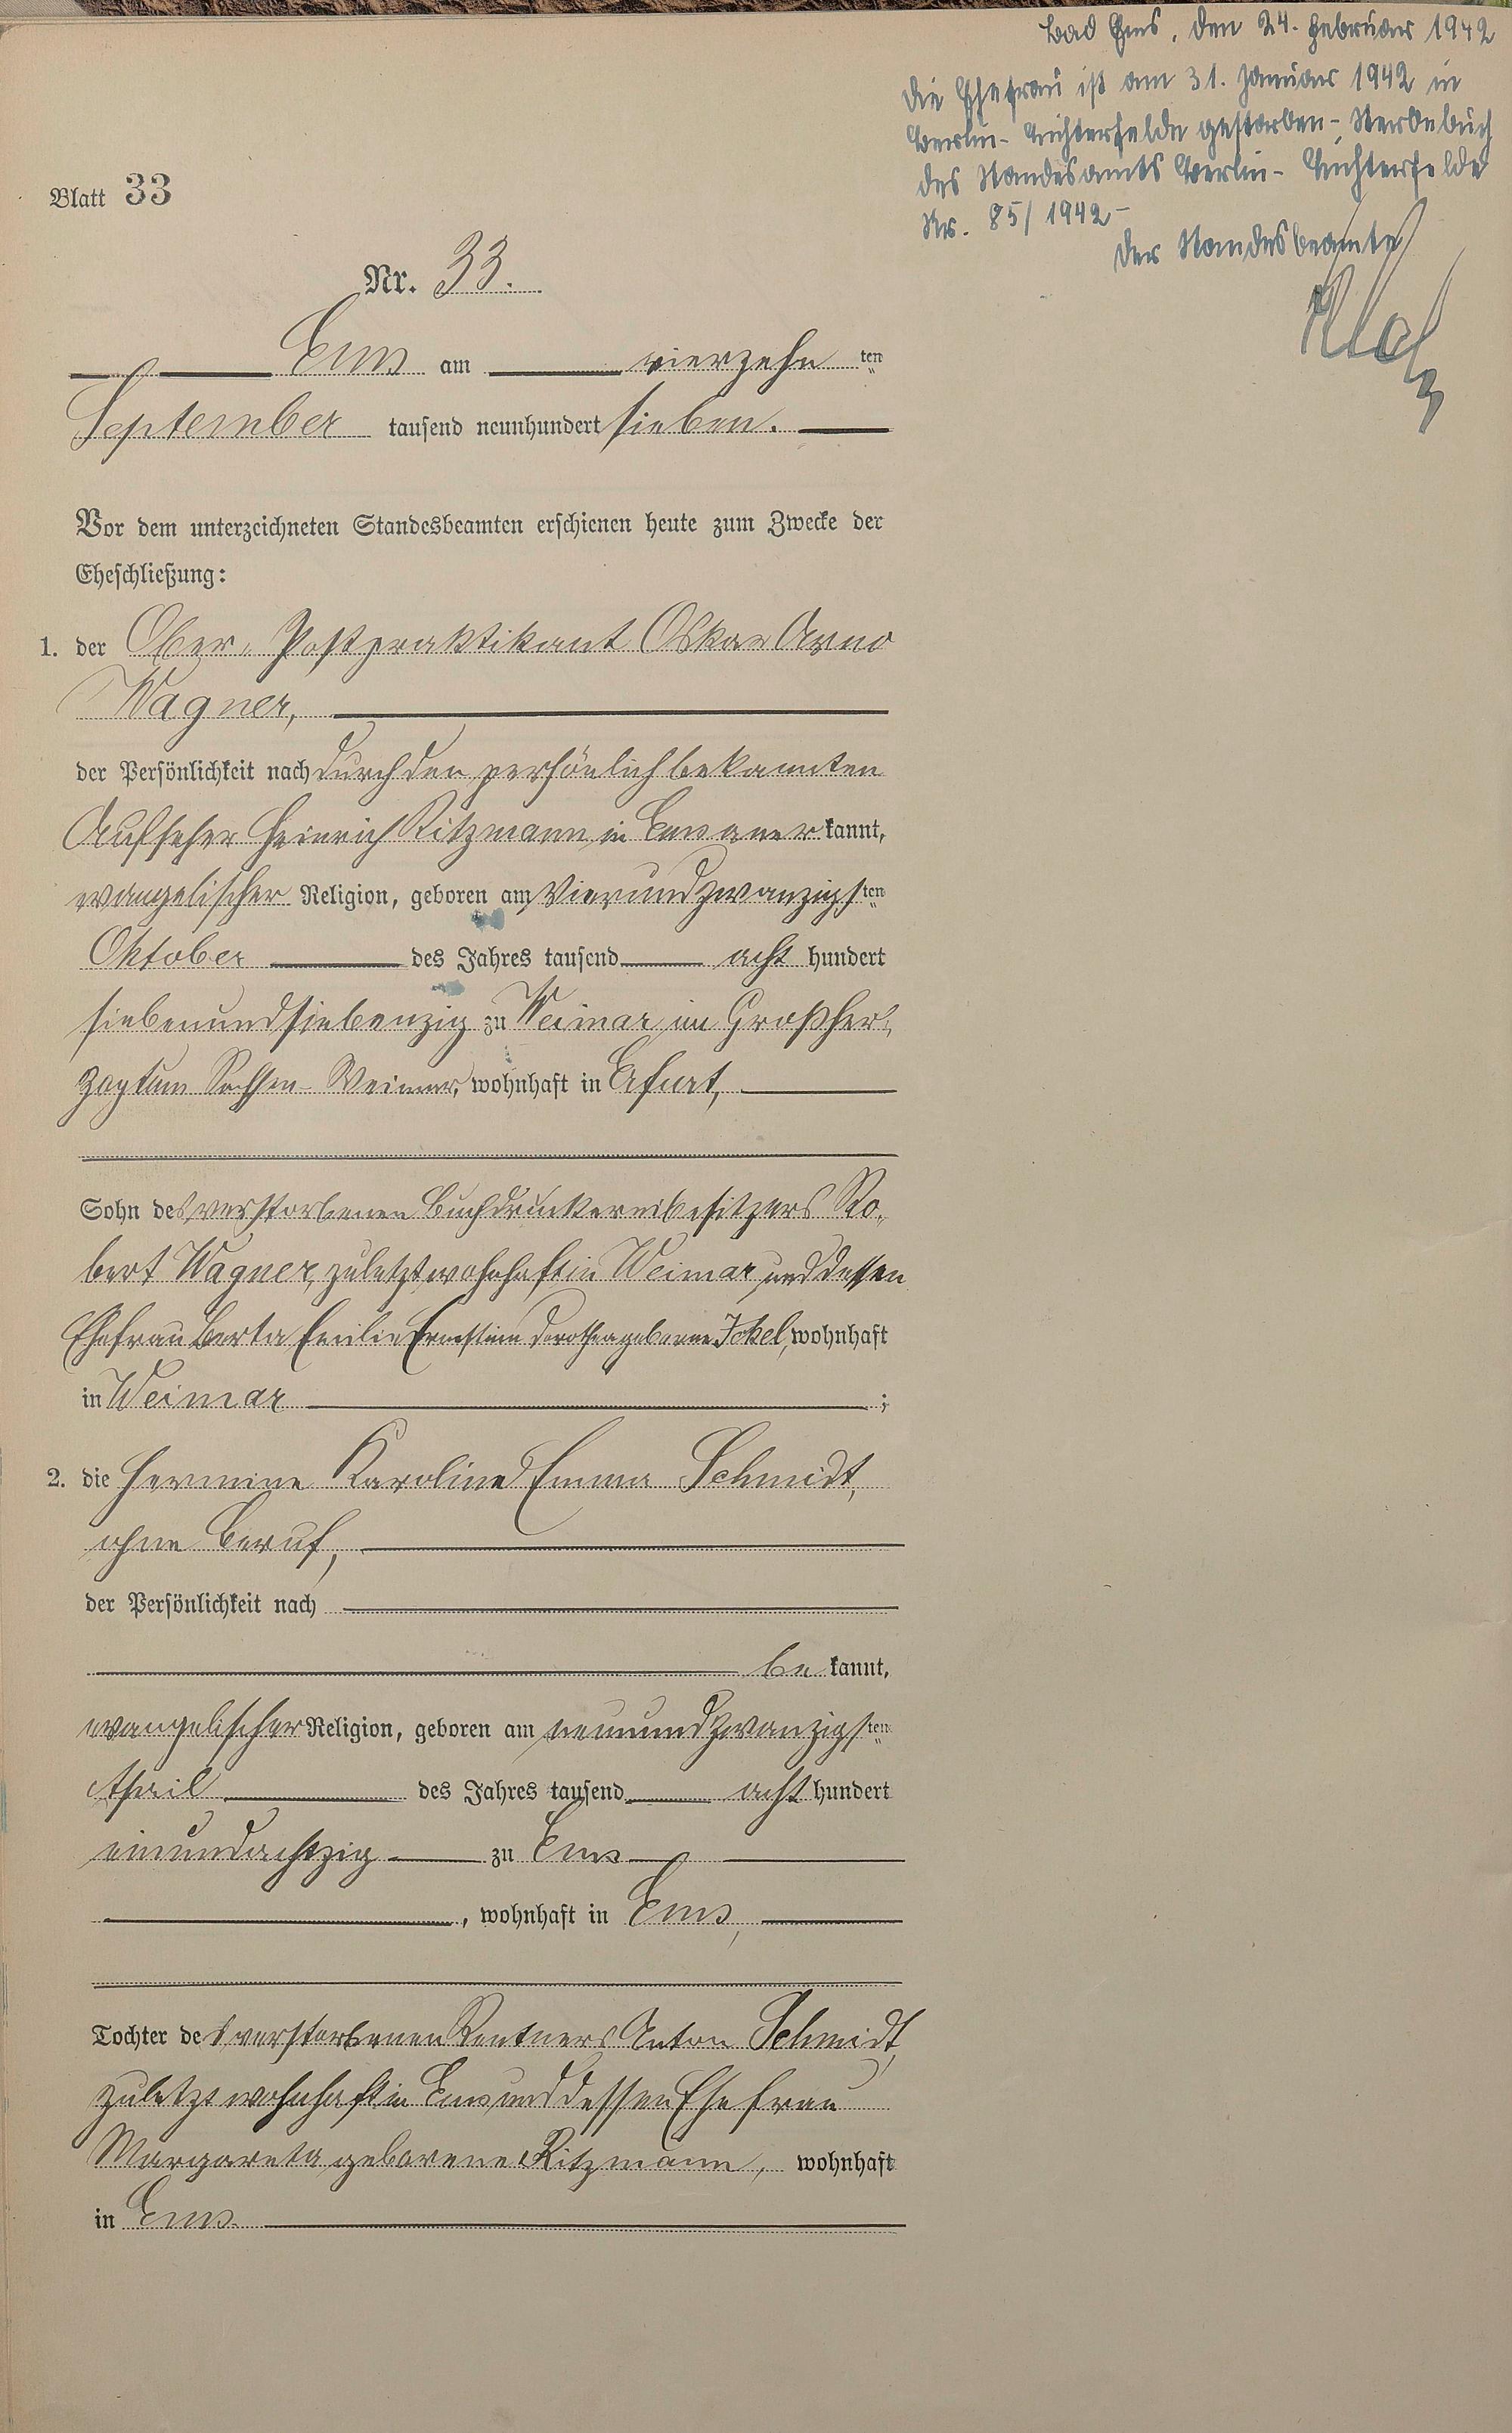 Bad Ems, den 24. Februar 1942
Die Ehefrau ist am 31. Januar 1942 in
Berlin-Lichterfelde gestorben - Sterbebuch
des Standesamts Berlin-Lichterfelde
Nr. 85/1942 -
Der Standesbeamte
Blatt 33
Nr. 33.
Ems am vierzehn ten
September tausend neunhundert sieben.
Vor dem unterzeichneten Standesbeamten erschienen heute zum Zwecke der
Eheschließung:
1. der Ober-Postpraktikant Oskar Arno
Wagner,
der Persönlichkeit nach durch den persönlich bekannten
Aufseher Heinrich Ritzmann in Ems anerkannt,
evangelischer Religion, geboren am vierundzwanzigsten
Oktober des Jahres tausend acht hundert
siebenundsiebenzig zu Weimar im Großher-
zogtum Sachsen-Weimar, wohnhaft in Erfurt,
Sohn des verstorbenen Buchdruckereibesitzers Ro-
bert Wagner, zuletzt wohnhaft in Weimar, und dessen
Ehefrau Berta Emilie Ernestine Dorothea geborene Ickel, wohnhaft
in Weimar ;
2. die Hermine Karoline Emma Schmidt,
ohne Beruf,
der Persönlichkeit nach
bekannt,
evangelischer Religion, geboren am neunundzwanzigsten
April des Jahres tausend acht hundert
einundachtzig zu Ems
, wohnhaft in Ems,
Tochter des verstorbenen Rentners Anton Schmidt,
zuletzt wohnhaft in Ems und dessen Ehefrau
Margareta geborene Ritzmann, wohnhaft
in Ems.